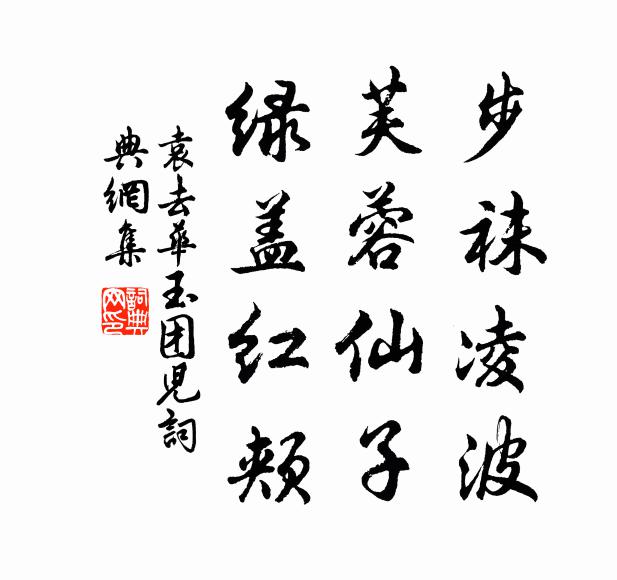 步袜凌波
芙蓉仙子
绿盖红颊
袁去华玉团児詞
典網集
詞典網印